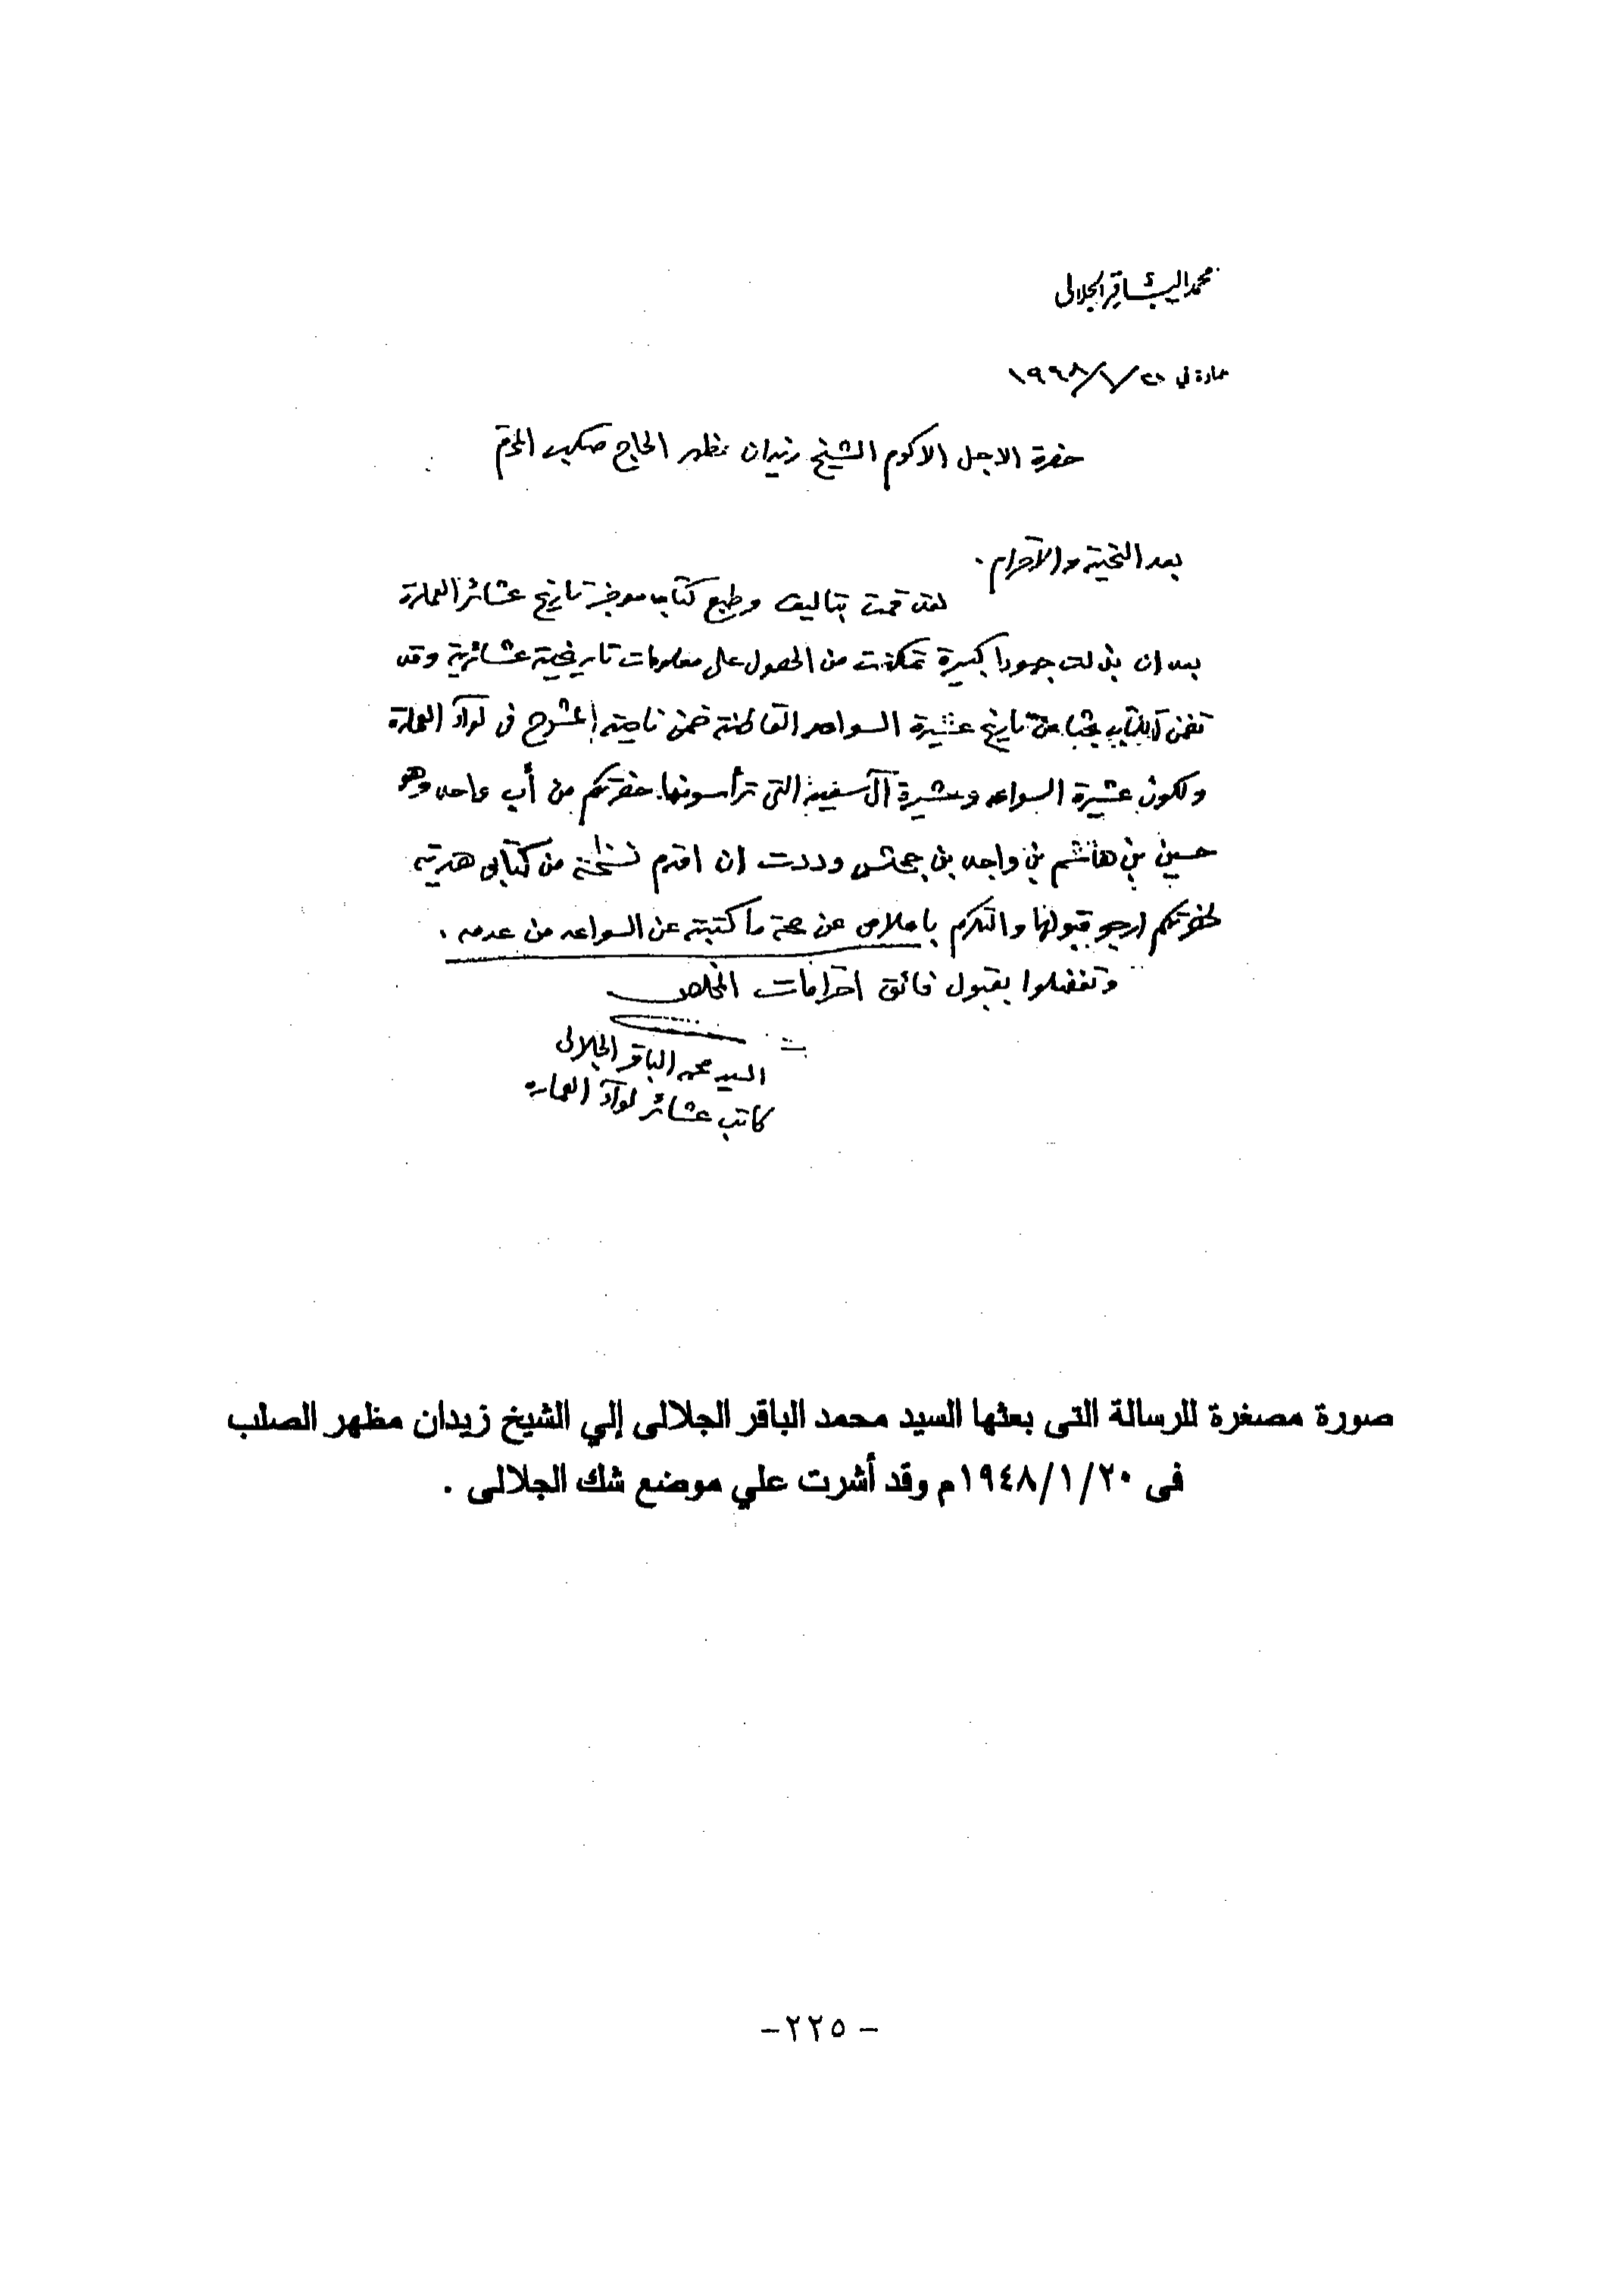 محمد الباقر الجلالي
عمارة في ٢٠/١/١٩٤٨
حضرة الاجل الاكرم الشيخ زيدان مظهر الحاج صكب المحترم
بعد التحية والاحترام .
لقد قمت بتاليف وطبع كتاب موجز تاريخ عشائر العمارة
بعد ان بذلت جهودا كبيرة تمكنت من الحصول على معلومات تاريخية عشائرية وقد
تضمن الكتاب بحثا عن تاريخ عشيرة السواعد القاطنة ضمن ناحية المشرح في لوآء العمارة
ولكون عشيرة السواعد وعشيرة آل سفينه التي ترأسونها حضرتكم من أب واحد وهو
حسين بن هاشم بن واجد بن جحش وددت ان اقدم نسخة من كتابي هدية
لحضرتكم ارجو قبولها والتكرم باعلامي عن صحة ما كتبته عن السواعد من عدمه .
وتفضلوا بقبول فائق احترامات المخلص
السيد محمد الباقر الجلالي
كاتب عشائر لوآء العماره
صورة مصغرة للرسالة التى بعثها السيد محمد الباقر الجلالى إلي الشيخ زيدان مظهر الصلب
فى ١٩٤٨/١/٢٠م وقد أشرت علي موضع شك الجلالى .
- ٢٢٥ -